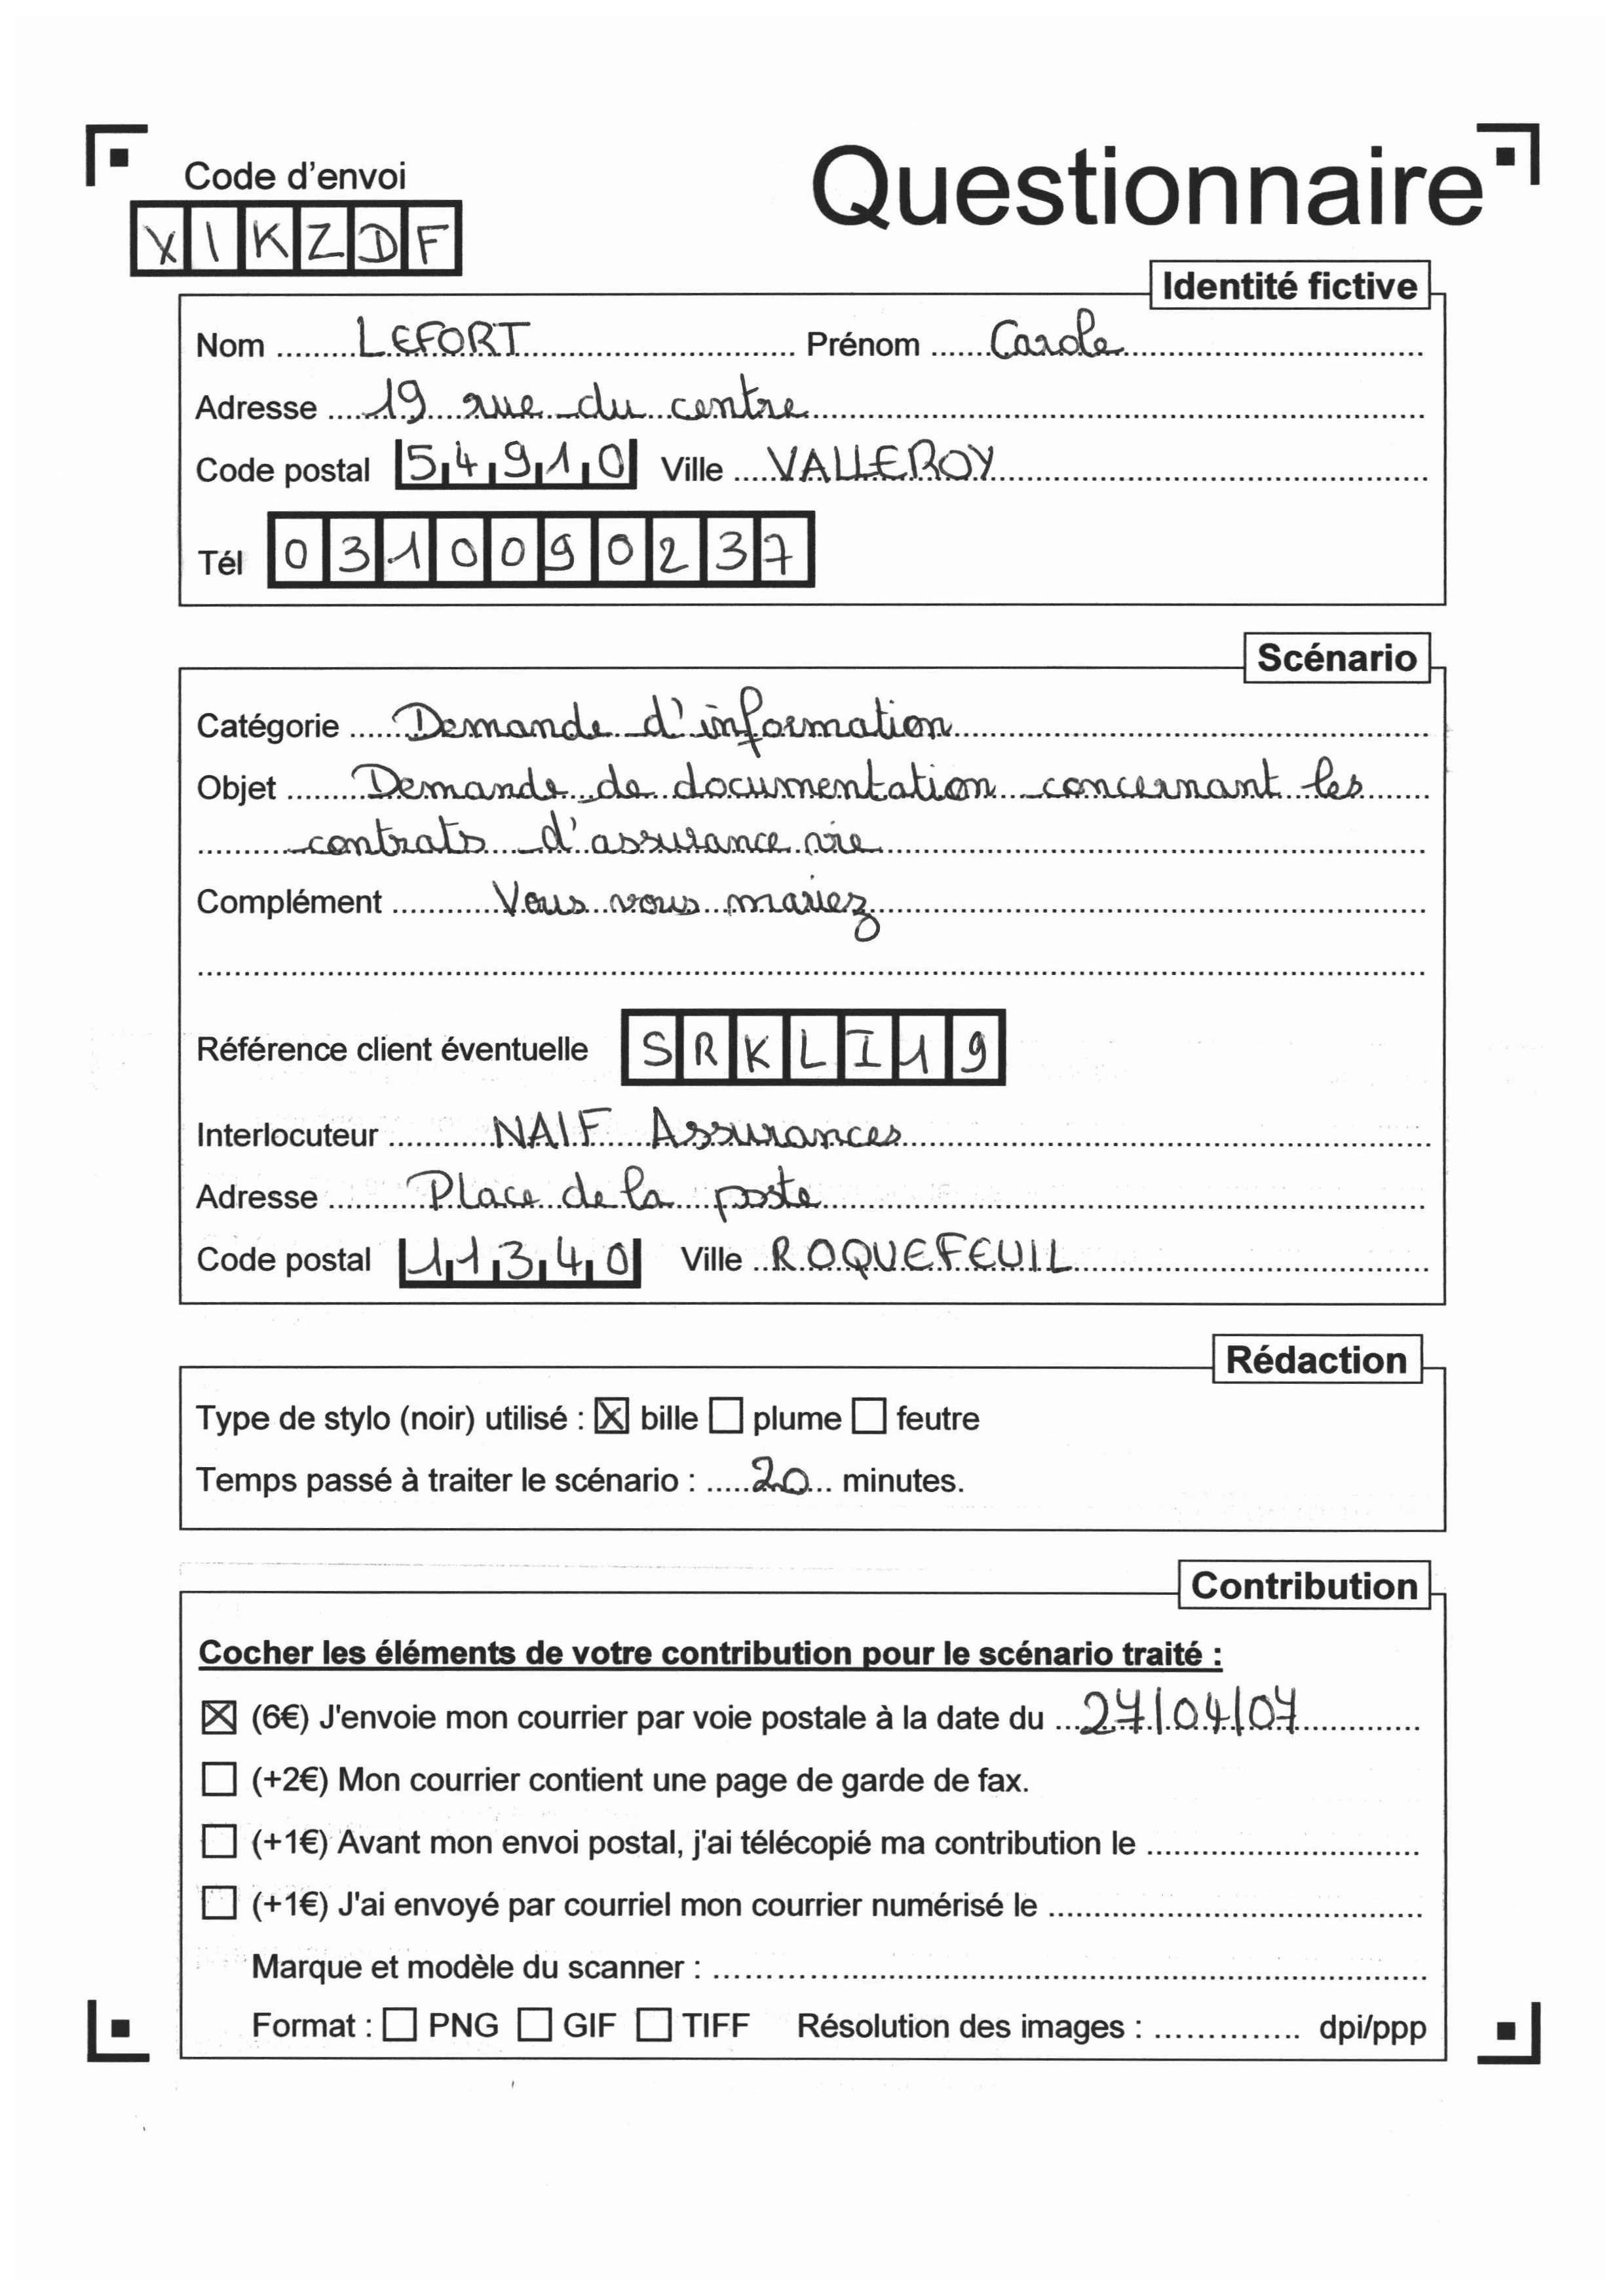 Code d'envoi
Questionnaire
XIKZDF
Identité fictive
Nom LEFORT Prénom Carole
Adresse 19 rue du centre
Code postal 54910 Ville VALLEROY
Tél 0310090237
Scénario
Catégorie Demande d'information
Objet Demande de documentation concernant les
contrats d'assurance vie
Complément Vous vous mariez
Référence client éventuelle SRKLI19
Interlocuteur NAIF Assurances
Adresse Place de la poste
Code postal 11340 Ville ROQUEFEUIL
Rédaction
Type de stylo (noir) utilisé : ☒ bille ☐ plume ☐ feutre
Temps passé à traiter le scénario : 20 minutes.
Contribution
Cocher les éléments de votre contribution pour le scénario traité :
☒ (6€) J'envoie mon courrier par voie postale à la date du 27/04/07
☐ (+2€) Mon courrier contient une page de garde de fax.
☐ (+1€) Avant mon envoi postal, j'ai télécopié ma contribution le
☐ (+1€) J'ai envoyé par courriel mon courrier numérisé le
Marque et modèle du scanner :
Format : ☐ PNG ☐ GIF ☐ TIFF Résolution des images : dpi/ppp